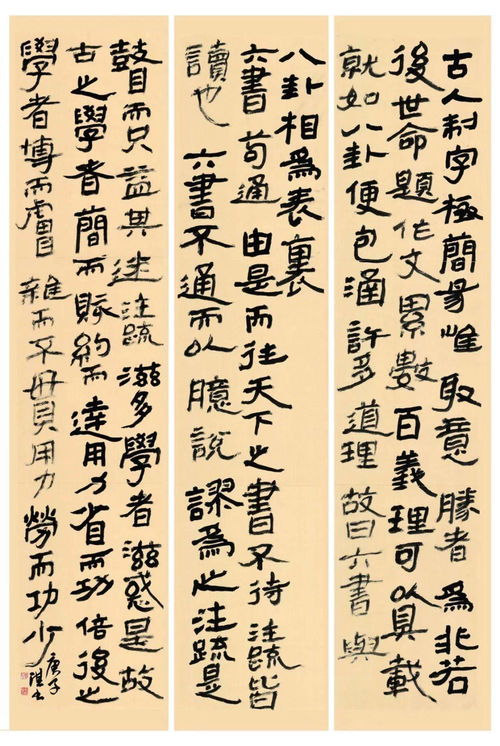 古人制字極簡易惟取意勝者為非若
後世命題作文累數百義理可以具載
就如八卦便包涵許多道理故曰六書與
八卦相為表裏
六書苟通由是而往天下之書不待注疏皆
讀也六書不通而以臆說謬為之注疏是
瞽而只益其迷注疏滋多學者滋惑是故
古之學者簡而賅約而達用力省而功倍後之
學者博而膚雜而不貫用力勞而功少
庚子